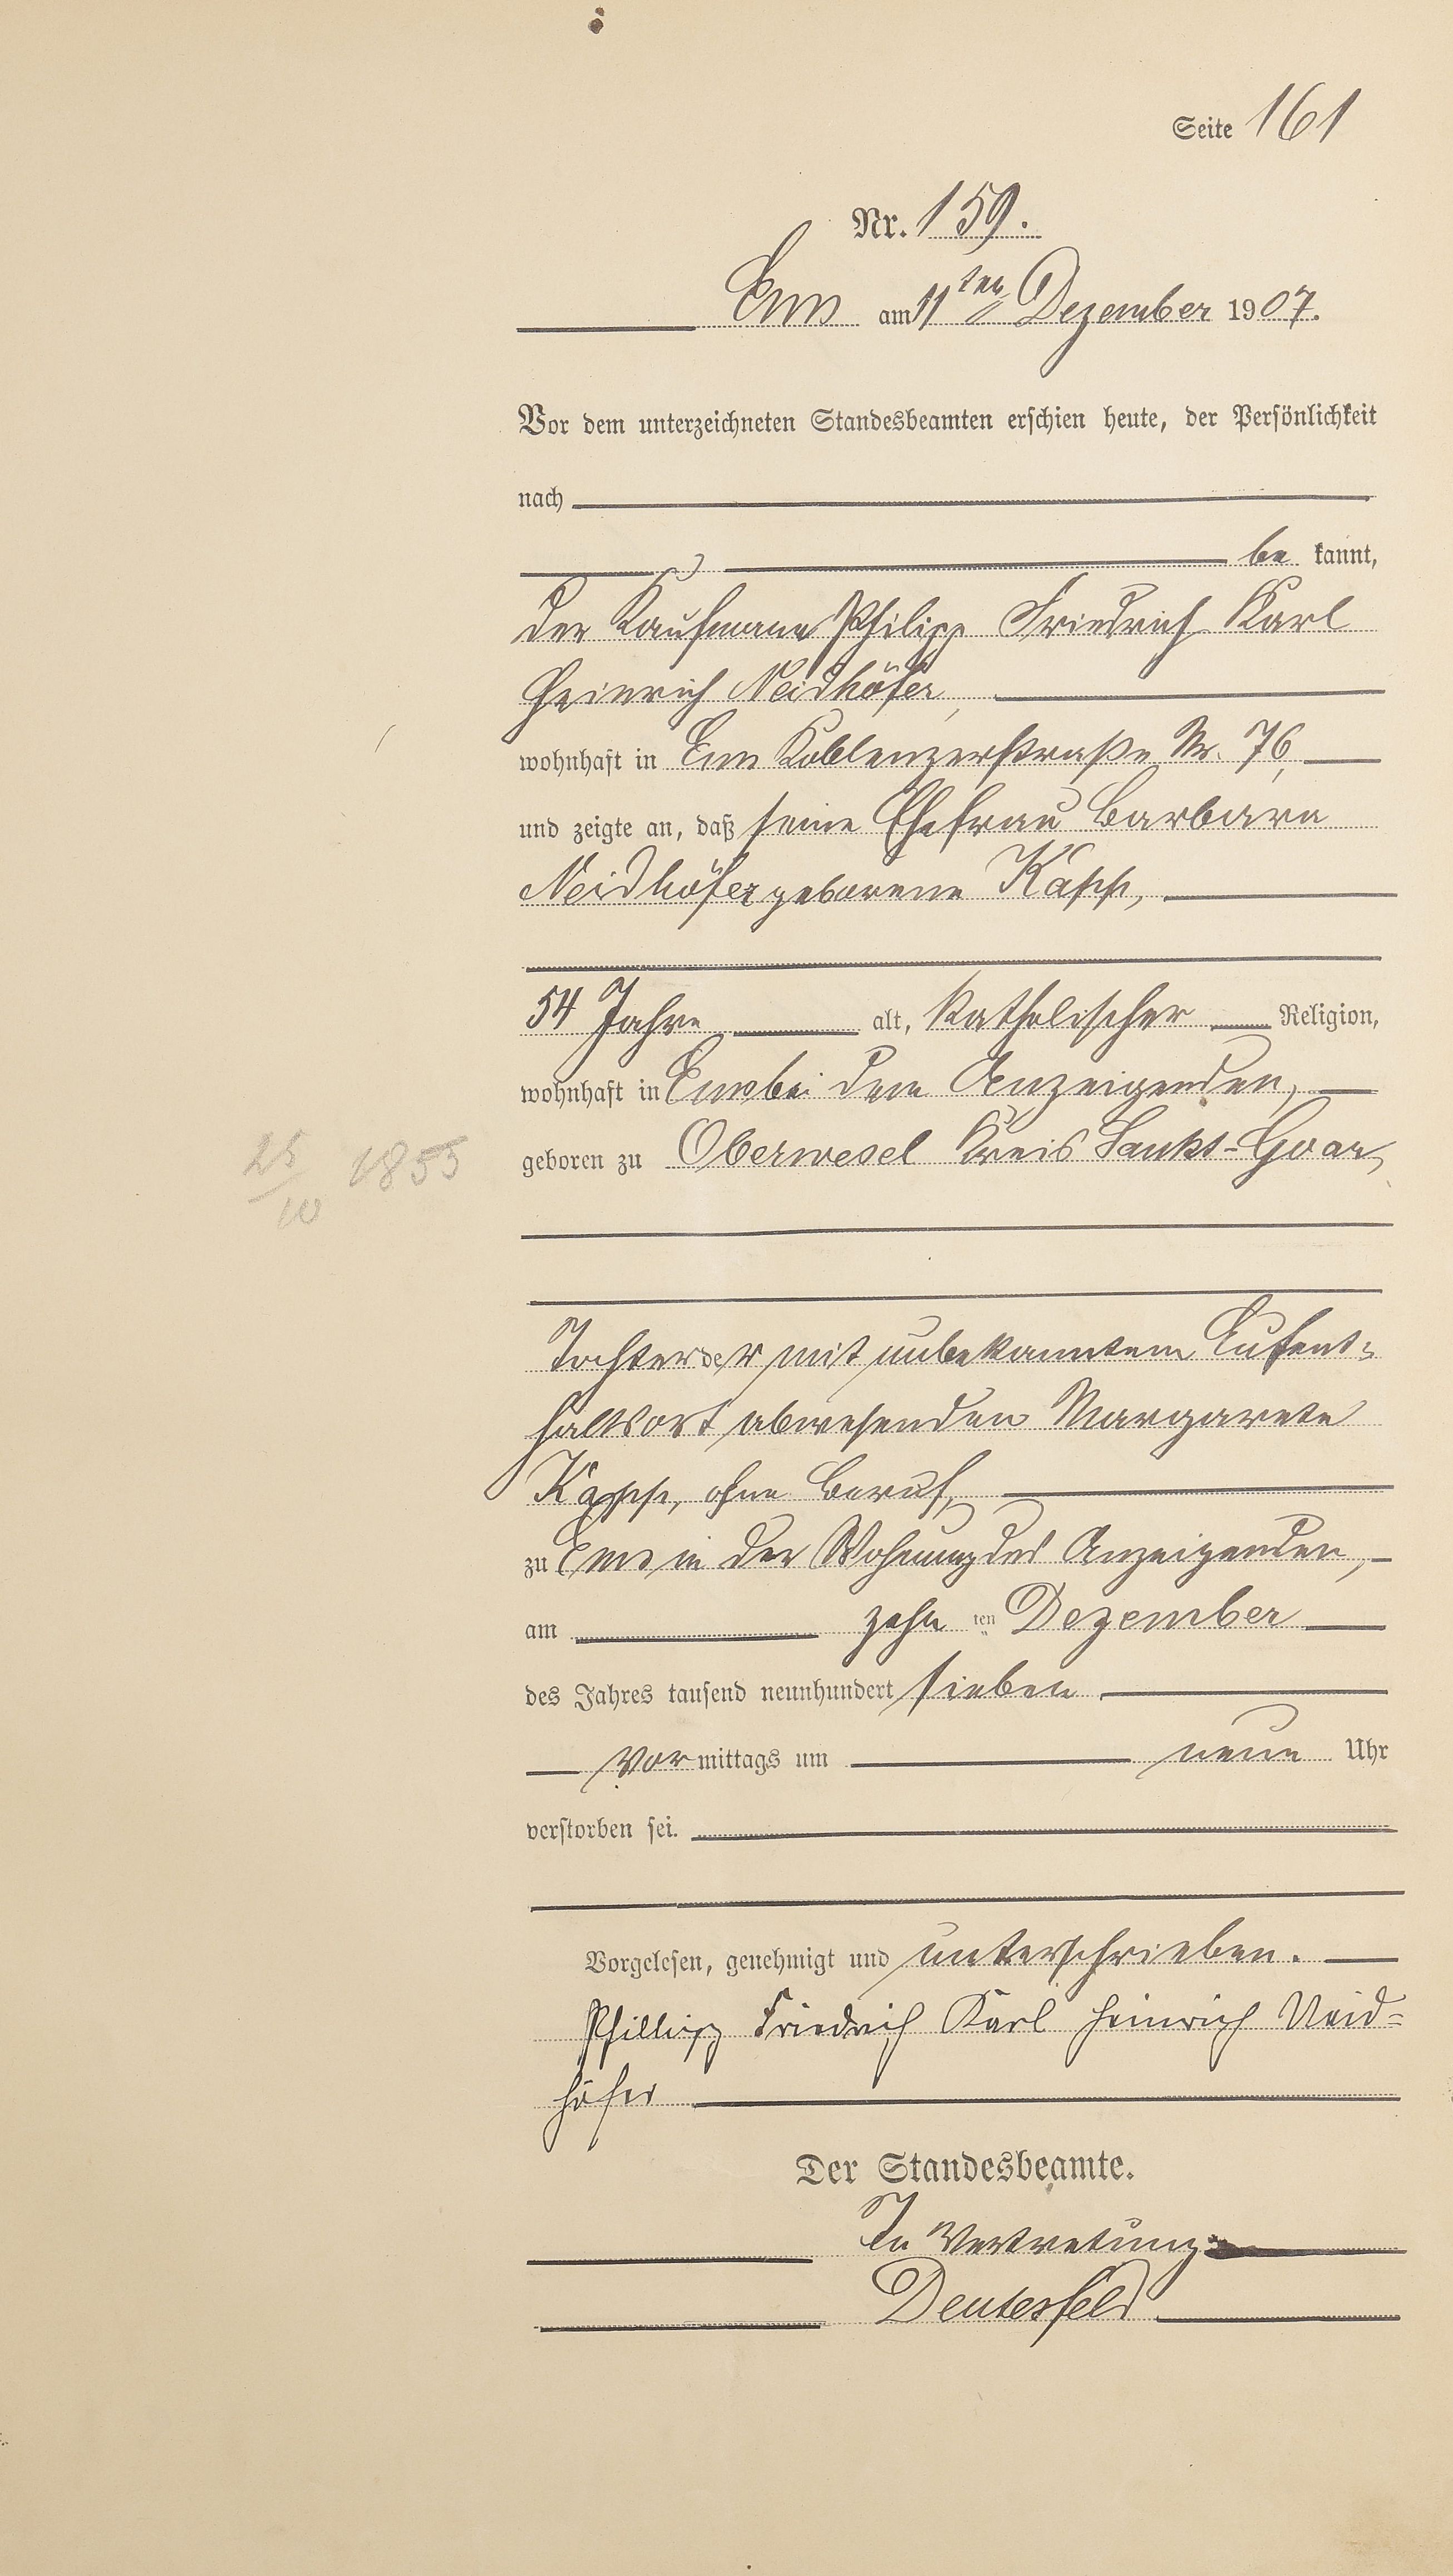 Seite 161
Nr. 159.
Ems am 11ten Dezember 1907.
Vor dem unterzeichneten Standesbeamten erschien heute, der Persönlichkeit
nach
be kannt,
der Kaufmann Philipp Friedrich Karl
Heinrich Neidhöfer,
wohnhaft in Ems Koblenzerstraße Nr. 76,
und zeigte an, daß seine Ehefrau Barbara
Neidhöfer geborene Kapp,
54 Jahre alt, katholischer Religion,
wohnhaft in Ems bei dem Anzeigenden,
25/10 1853
geboren zu Oberwesel Kreis Sankt-Goar,
Tochter der mit unbekanntem Aufent-
haltsort abwesenden Margarete
Kapp, ohne Beruf,
zu Ems in der Wohnung des Anzeigenden,
am zehn ten Dezember
des Jahres tausend neunhundert sieben
vor mittags um neun Uhr
verstorben sei.
Vorgelesen, genehmigt und unterschrieben.
Phillipp Friedrich Karl Heinrich Neid-
höfer
Der Standesbeamte.
In Vertretung:
Deutesfeld